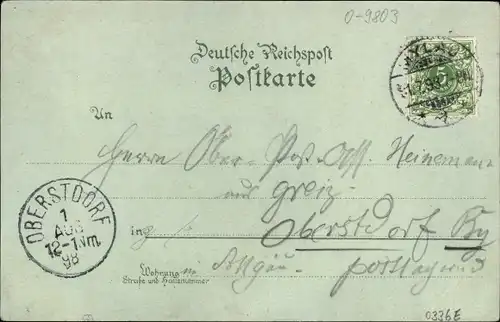 0-9803
MYLAU
31.7.98
Deutsche Reichspost
Postkarte
An
Herrn Ober-Post-Ass. Heinemann
aus Greiz
in Oberstdorf By
Wohnung im Allgäu.
postlagernd
Straße und Hausnummer
OBERSTDORF
1
AUG
12-1Nm.
98
0336E